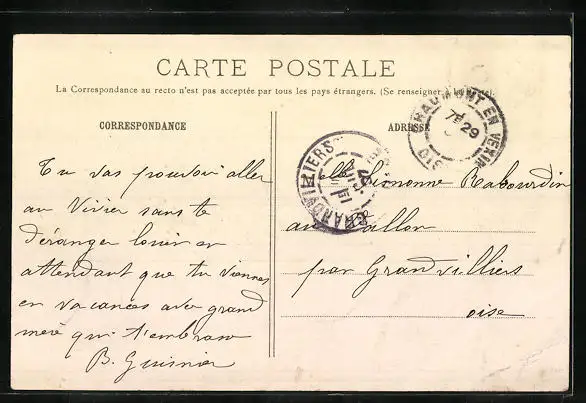 CARTE POSTALE
La Correspondance au recto n'est pas acceptée par tous les pays étrangers. (Se renseigner à la Poste).
CORRESPONDANCE
Tu vas pouvoir aller
au Vivier sans te
déranger en
attendant que tu viennes
en vacances avec grand
mère qui t'embrasse
B. Guisnier
ADRESSE
CHAUMONT EN VEXIN
7 29
OISE
GRANDVILLIERS
Melle Simonne Rabourdin
au
par Grandvilliers
oise